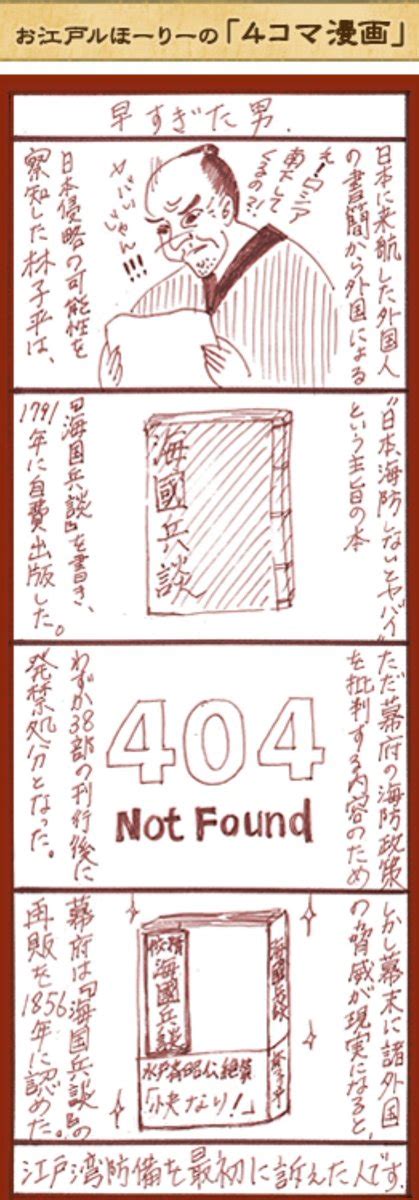 お江戸ルほーりーの「4コマ漫画」
早すぎた男.
日本に来航した外国人
の書簡から外国による
え!ロシア
南下して
くるの?!
ヤバい
じゃん
!!!
日本侵略の可能性を
察知した林子平は、
“日本、海防しないとヤバイ”
という主旨の本
海國兵談
『海国兵談』を書き、
1791年に自費出版した。
ただ幕府の海防政策
を批判する内容のため
404
Not Found
わずか38部の刊行後に
発禁処分となった。
しかし幕末に諸外国
の脅威が現実になると、
海國兵談
海國兵談
林子平
水戸斉昭公絶賛
「快なり!」
幕府は『海国兵談』の
再販を1856年に認めた。
江戸湾防備を最初に訴えた人です.